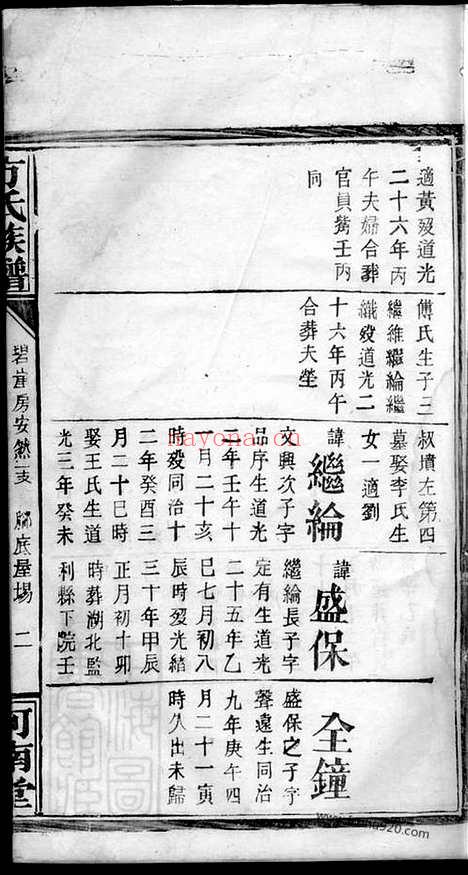 適黃歿道光
二十六年丙
午夫婦合葬
官員觜壬丙
同
傅氏生子三
繼維繼綸繼
織歿道光二
十六年丙午
合葬夫塋
叔墳左第四
墓娶李氏生
女一適劉
諱繼綸
文興次子字
品序生道光
二年壬午十
一月二十亥
時歿同治十
二年癸酉三
月二十巳時
娶王氏生道
光三年癸未
諱盛保
繼綸長子字
定有生道光
二十五年乙
巳七月初八
辰時歿光緒
三十年甲辰
正月初十卯
時葬湖北監
利縣下院壬
全鐘
盛保之子字
聲遠生同治
九年庚午四
月二十一寅
時久出未歸
方氏族譜
碧崖房安然支
腳底屋場
二
河南堂
hayona.cn